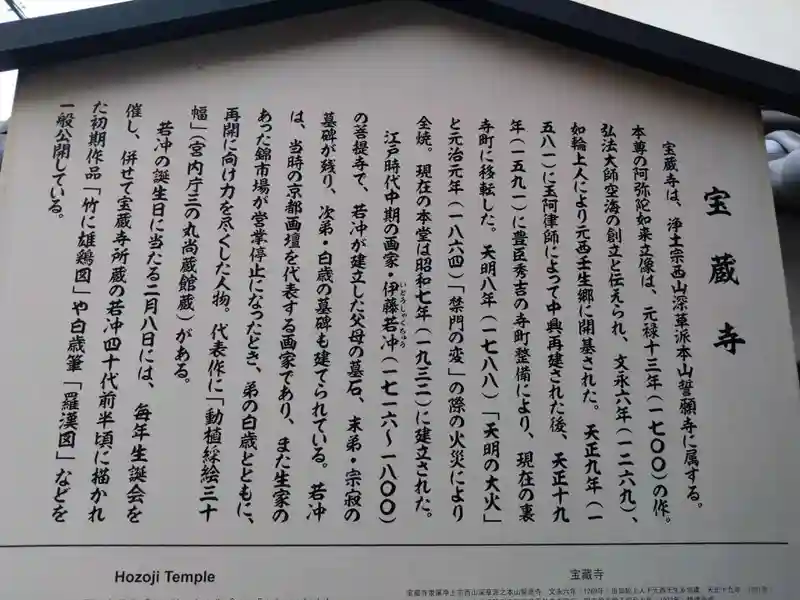 宝蔵寺
宝蔵寺は、浄土宗西山深草派本山誓願寺に属する。
本尊の阿弥陀如来立像は、元禄十三年（一七〇〇）の作。
弘法大師空海の創立と伝えられ、文永六年（一二六九）、
如輪上人により元西壬生郷に開基された。天正九年（一
五八一）に玉阿律師によって中興再建された後、天正十九
年（一五九一）に豊臣秀吉の寺町整備により、現在の裏
寺町に移転した。天明八年（一七八八）「天明の大火」
と元治元年（一八六四）「禁門の変」の際の火災により
全焼。現在の本堂は昭和七年（一九三二）に建立された。
江戸時代中期の画家・伊藤若冲（一七一六～一八〇〇）
いとうじゃくちゅう
の菩提寺で、若冲が建立した父母の墓石、末弟・宗寂の
墓碑が残り、次弟・白歳の墓碑も建てられている。若冲
は、当時の京都画壇を代表する画家であり、また生家の
あった錦市場が営業停止になったとき、弟の白歳とともに、
再開に向け力を尽くした人物。代表作に「動植綵絵三十
幅」（宮内庁三の丸尚蔵館蔵）がある。
若冲の誕生日に当たる二月八日には、毎年生誕会を
催し、併せて宝蔵寺所蔵の若冲四十代前半頃に描かれ
た初期作品「竹に雄鶏図」や白歳筆「羅漢図」などを
一般公開している。
Hozoji Temple
宝藏寺